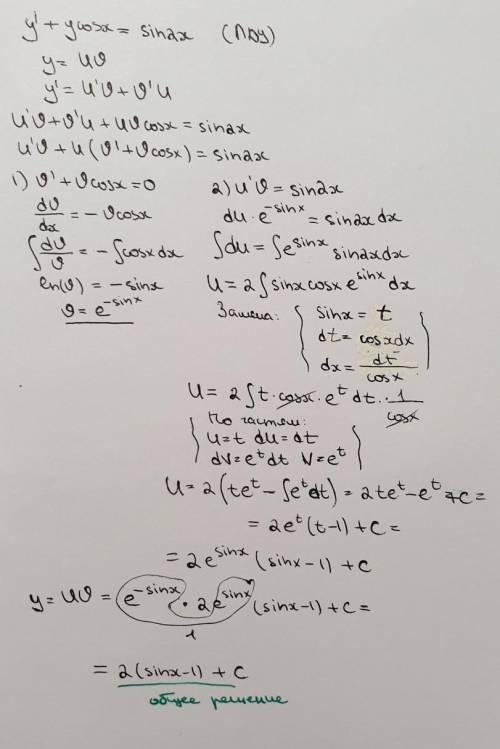 y' + ycosx = sin2x (ЛДУ)
y = uϑ
y' = u'ϑ + ϑ'u
u'ϑ + ϑ'u + uϑcosx = sin2x
u'ϑ + u(ϑ' + ϑcosx) = sin2x
1) ϑ' + ϑcosx = 0
dϑ/dx = -ϑcosx
∫dϑ/ϑ = -∫cosxdx
ln(ϑ) = -sinx
ϑ = e^{-sinx}
2) u'ϑ = sin2x
du · e^{-sinx} = sin2xdx
∫du = ∫e^{sinx} sin2xdx
u = 2∫sinxcosx e^{sinx} dx
Замена:
sinx = t
dt = cosxdx
dx = dt/cosx
u = 2∫t · cosx · e^t dt · 1/cosx
По частям:
u = t du = dt
dV = e^t dt V = e^t
u = 2(te^t - ∫e^t dt) = 2te^t - e^t + c =
= 2e^t(t-1) + c =
= 2e^{sinx}(sinx-1) + c
y = uϑ = e^{-sinx} · 2e^{sinx}(sinx-1) + c =
1
= 2(sinx-1) + c
общее решение